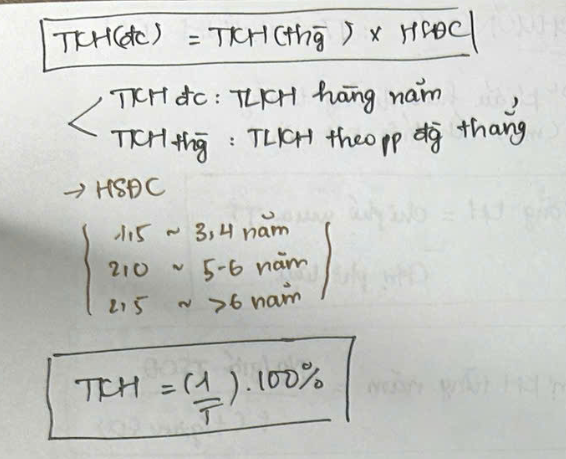 TKH(đc) = TKH(thg̃) x HSĐC
TKH đc : TLKH hằng năm
TKH thg̃ : TLKH theo pp đg̃ thẳng
→ HSĐC
1,5 ~ 3,4 năm
2,0 ~ 5-6 năm
2,5 ~ >6 năm
TKH = (1/T) . 100%